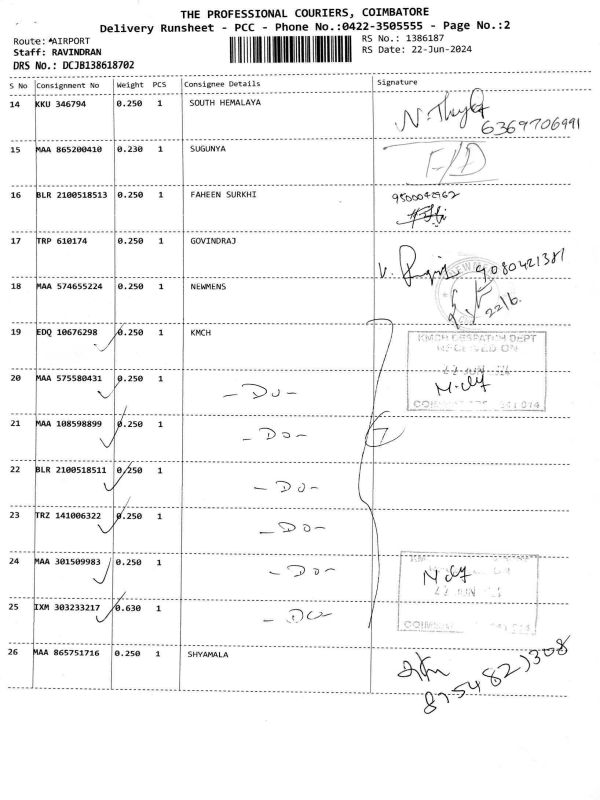 THE PROFESSIONAL COURIERS, COIMBATORE
Delivery Runsheet - PCC - Phone No.:0422-3505555 - Page No.:2
Route: *AIRPORT
RS No.: 1386187
Staff: RAVINDRAN
RS Date: 22-Jun-2024
DRS No.: DCJB138618702
S No Consignment No Weight PCS Consignee Details Signature
14 KKU 346794 0.250 1 SOUTH HEMALAYA
6369706991
15 MAA 865200410 0.230 1 SUGUNYA
F/D
16 BLR 2100518513 0.250 1 FAHEEN SURKHI
9500042962
17 TRP 610174 0.250 1 GOVINDRAJ
9080421381
18 MAA 574655224 0.250 1 NEWMENS
22/6.
19 EDQ 10676298 0.250 1 KMCH
KMCH DESPATCH DEPT
RECEIVED ON
22 JUN
20 MAA 575580431 0.250 1 - Do -
21 MAA 108598899 0.250 1 - Do - 7
22 BLR 2100518511 0.250 1 - Do -
23 TRZ 141006322 0.250 1 - Do -
24 MAA 301509983 0.250 1 - Do -
22 JUN
25 IXM 303233217 0.630 1 - Do -
26 MAA 865751716 0.250 1 SHYAMALA
8754827308